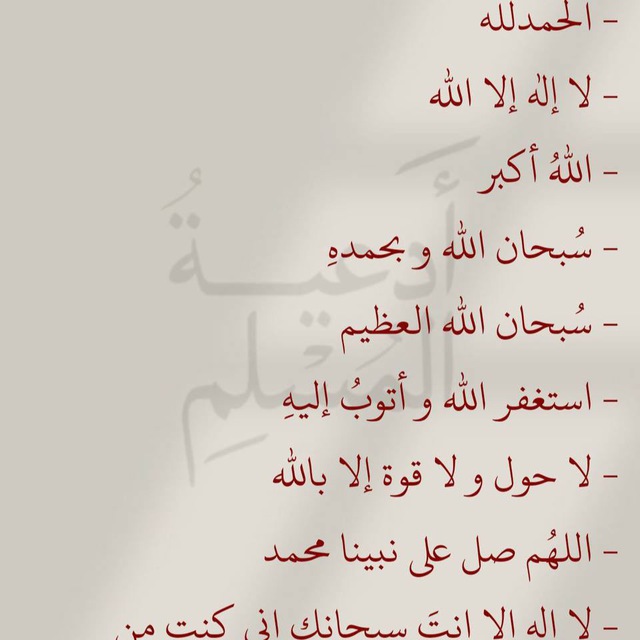 - الحمدلله
- لا إله إلا الله
- اللهُ أكبر
- سُبحان الله و بحمدهِ
- سُبحان الله العظيم
- استغفر الله و أتوبُ إليهِ
- لا حول و لا قوة إلا بالله
- اللهُم صل على نبينا محمد
- لا اله الا انتَ سبحانك اني كنت من
أدعيةُ
المُسْلِمِ